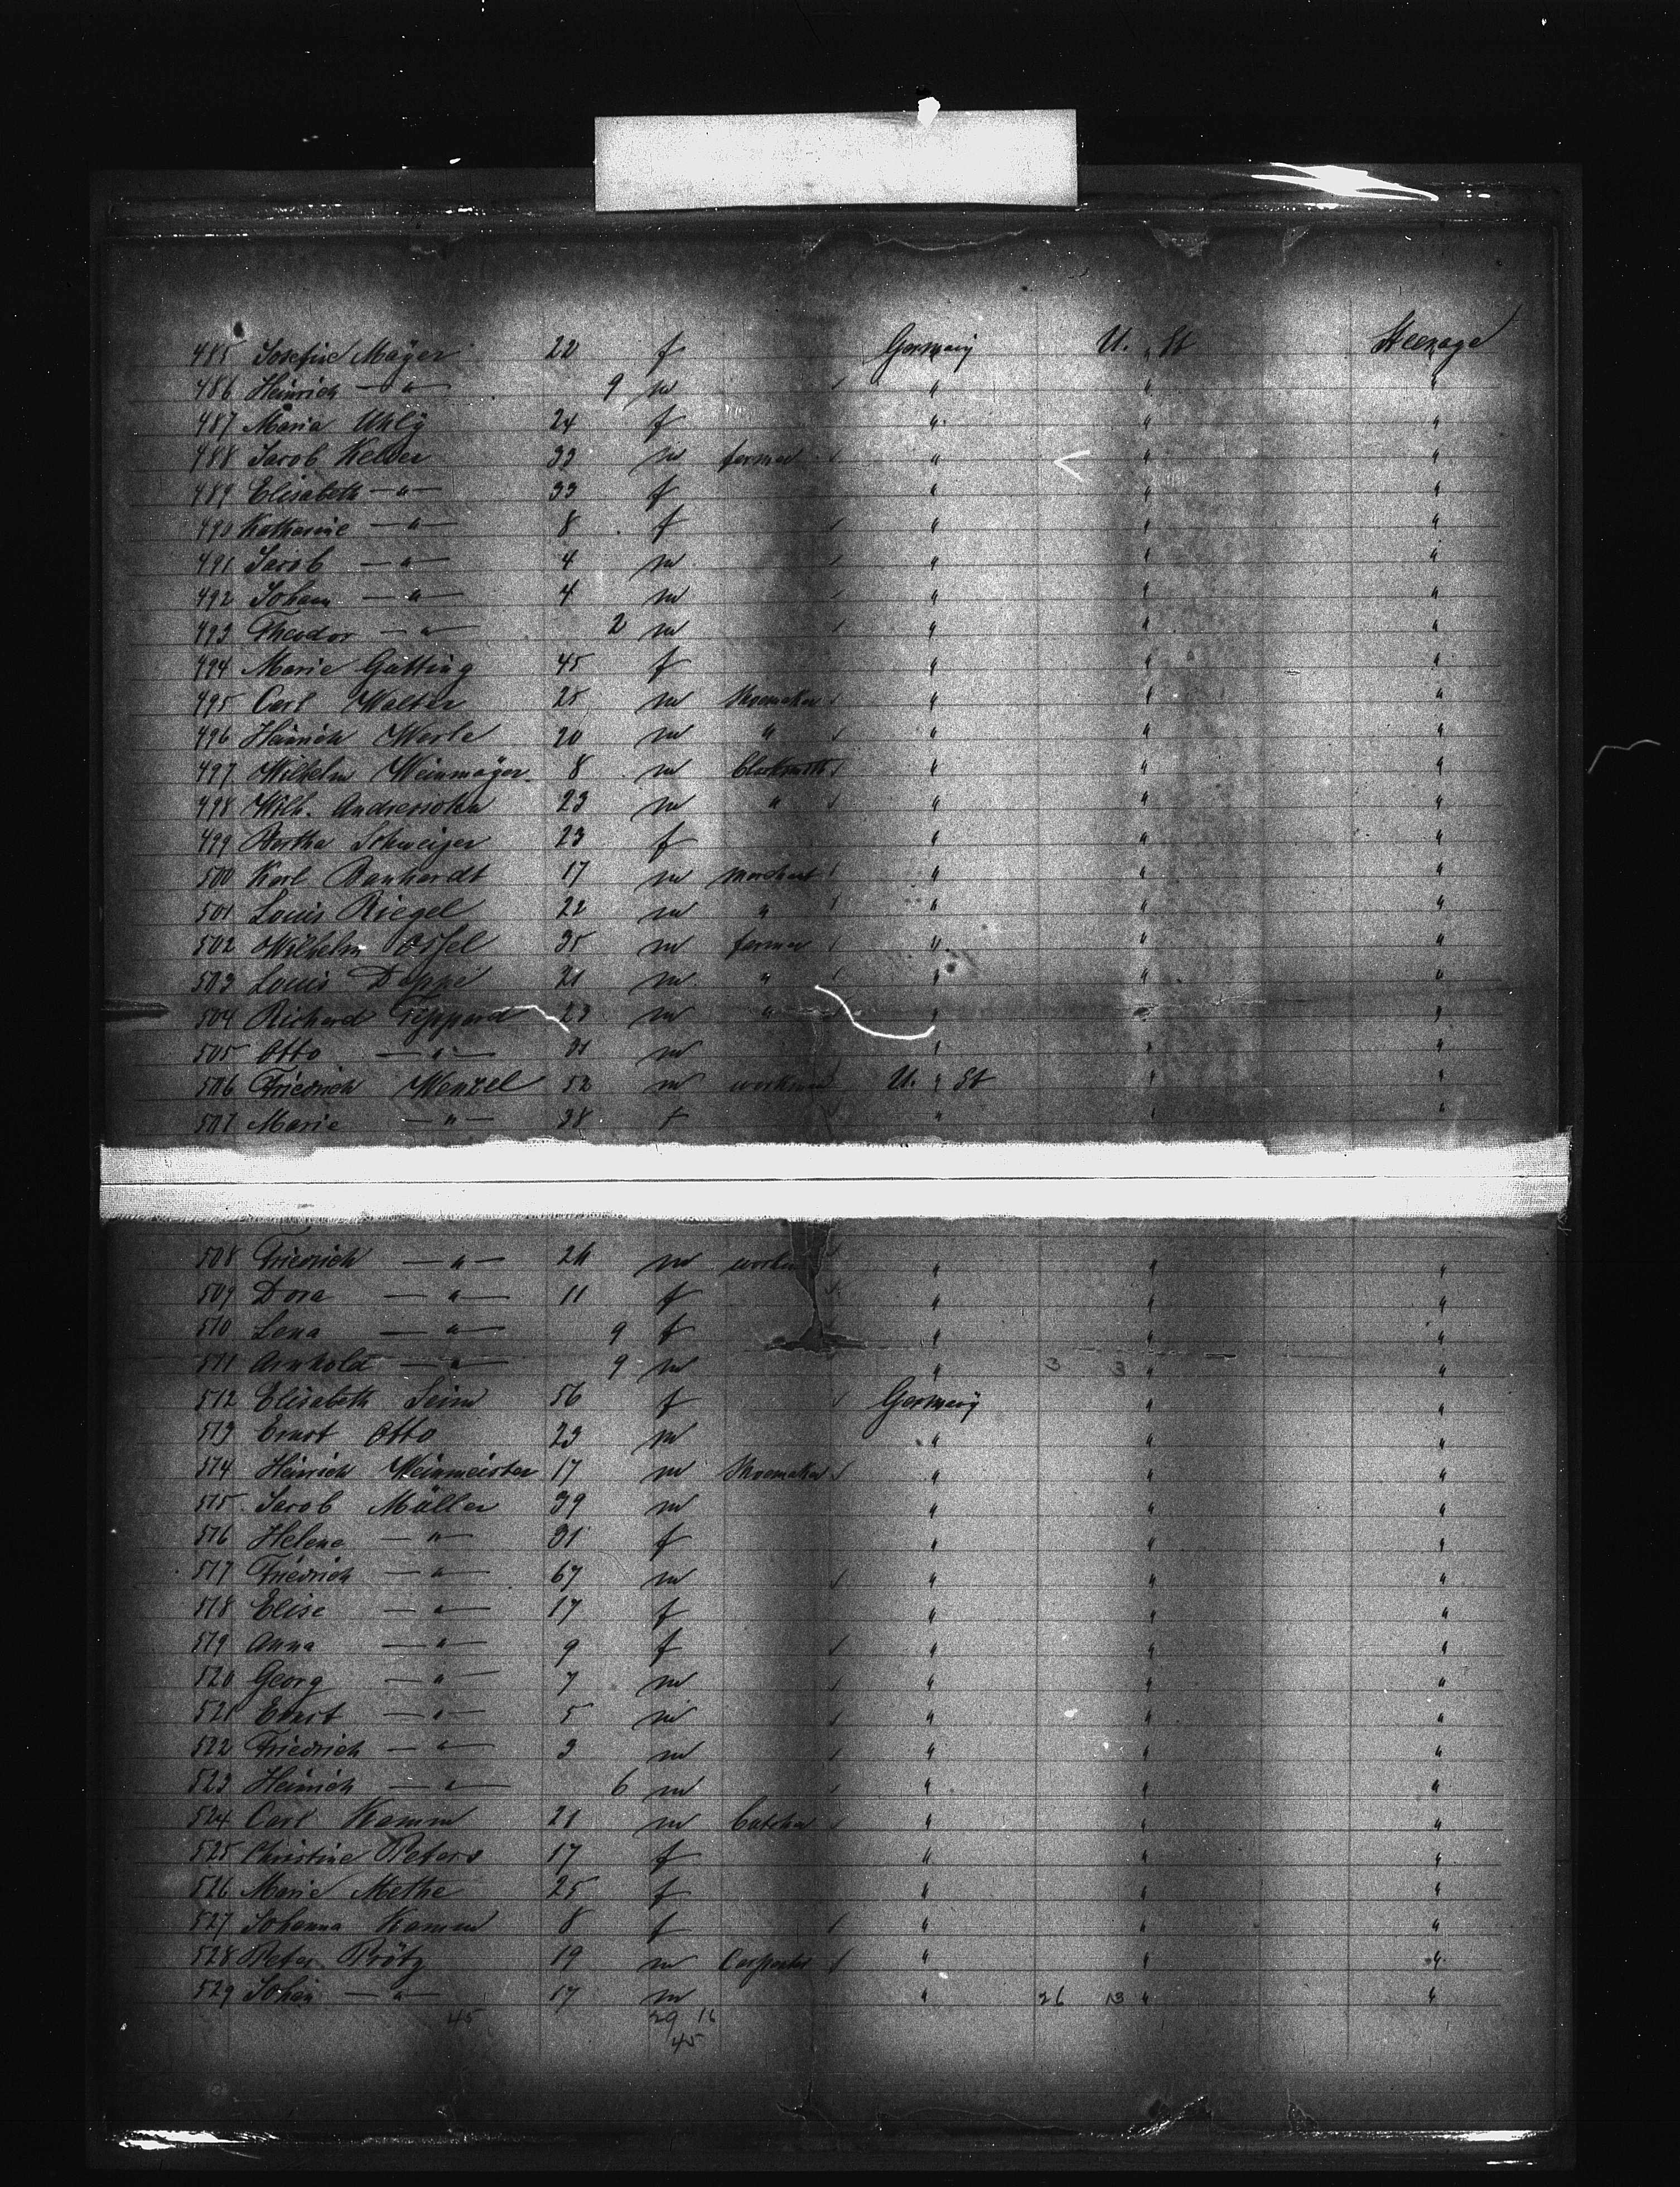 485 Josefine Mayer 22 f Germany U. St Steerage
486 Heinrich — " — 9 m " " "
487 Maria Uhly 24 f " " "
488 Jacob Keller 33 m farmer " " "
489 Elisabeth — " — 33 f " " "
490 Katharine — " — 8 f " " "
491 Jacob — " — 4 m " " "
492 Johann — " — 4 m " " "
493 Theodor — " — 2 m " " "
494 Marie Gatting 45 f " " "
495 Carl Walter 25 m Shoemaker " " "
496 Heinrich Werle 20 m " " " "
497 Wilhelm Weinmayer 8 m blacksmith " " "
498 Wilh. 23 m " " " "
499 Bertha Schweizer 23 f " " "
500 Karl Banhardt 17 m merchant " " "
501 Louis Riegel 22 m " " " "
502 Wilhelm Ossel 35 m farmer " " "
503 Louis Deppe 21 m " " " "
504 Richard Tippard 23 m " " " "
505 Otto — " — m " " "
506 Friedrich Wenzel 52 m workman U. St " "
507 Marie — " — 38 f " " "
508 Friedrich — " — m " " "
509 Dora — " — 11 f " " "
510 Lena — " — 9 f " " "
511 Arnhold — " — 9 m " 3 3 " "
512 Elisabeth Seim 56 f Germany " "
513 Ernst Otto 23 m " " "
514 Heinrich Weinmeister 17 m Shoemaker " " "
515 Jacob Müller 39 m " " "
516 Helene — " — 31 f " " "
517 Friedrich — " — 67 m " " "
518 Elise — " — 17 f " " "
519 Anna — " — 9 f " " "
520 Georg — " — 7 m " " "
521 Ernst — " — 5 m " " "
522 Friedrich — " — 3 m " " "
523 Heinrich — " — 6 m " " "
524 Carl Kamm 21 m " " "
525 Christine Peters 17 f " " "
526 Marie Methe 25 f " " "
527 Johanna Kamm 8 f " " "
528 Peter Prötz 19 m Carpenter " " "
529 Johan — " — 17 m " 26 13 " "
45 29 16
45